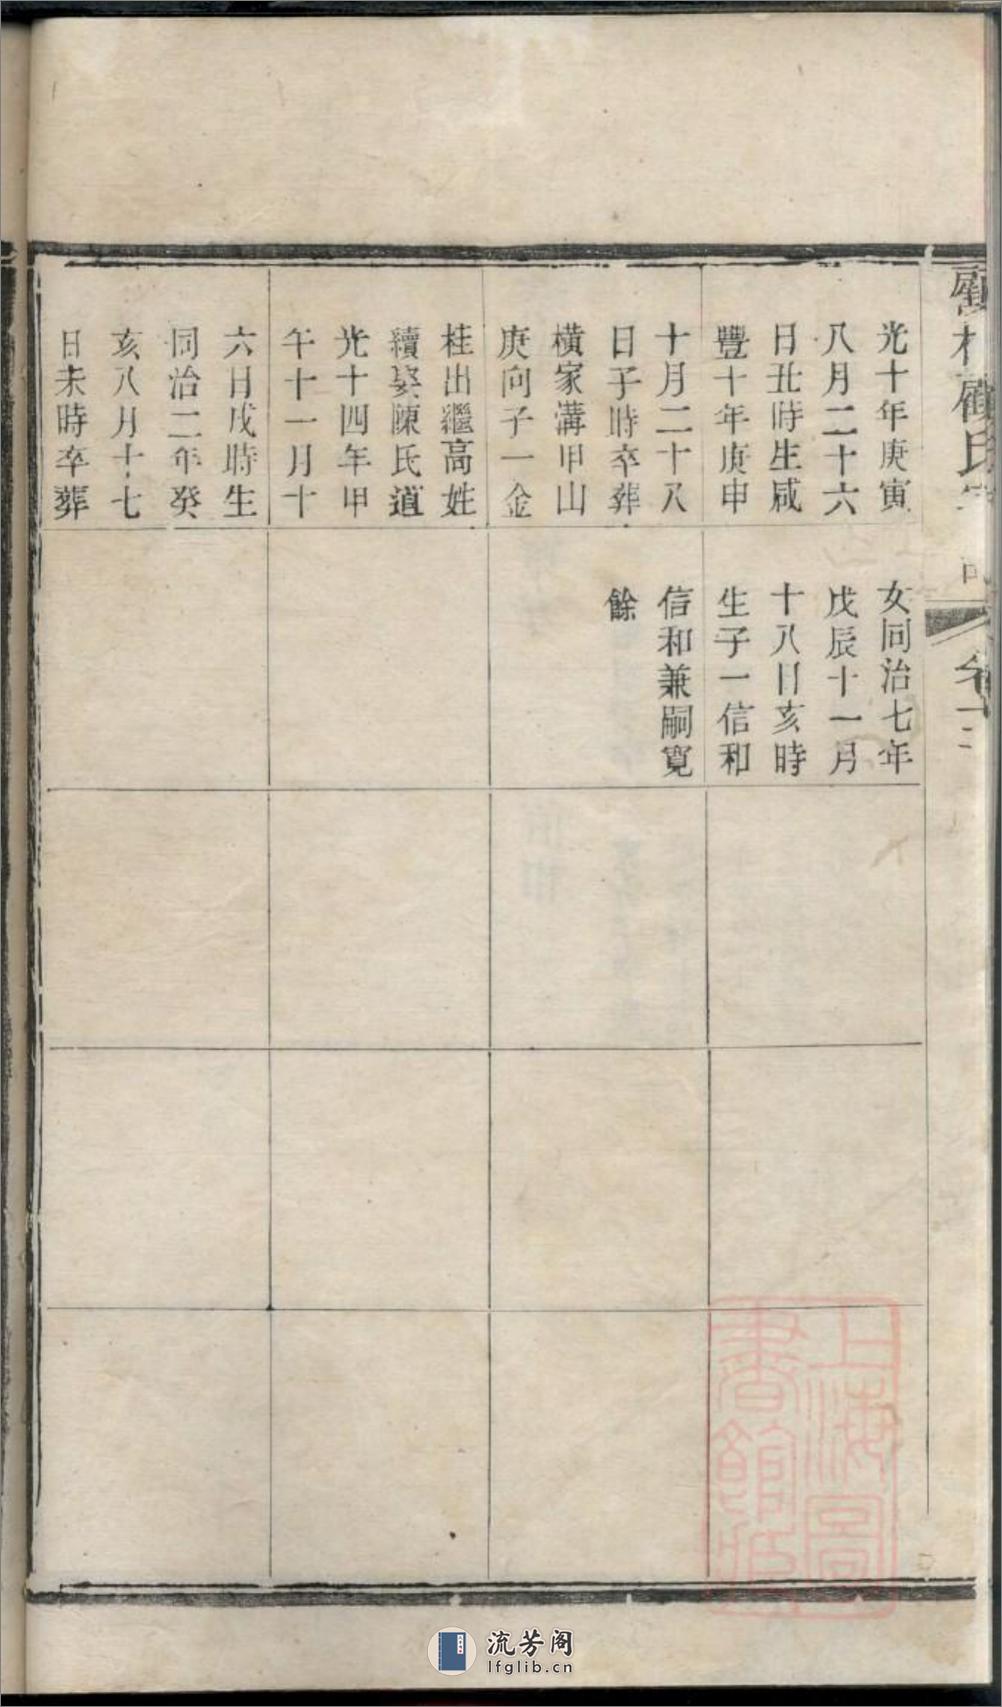 光十年庚寅
八月二十六
日丑時生咸
豐十年庚申
十月二十八
日子時卒葬
橫家溝甲山
庚向子一金
桂出繼高姓
續娶陳氏道
光十四年甲
午十一月十
六日戌時生
同治二年癸
亥八月十七
日未時卒葬
女同治七年
戊辰十一月
十八日亥時
生子一信和
信和兼嗣寬
餘
上海圖
書館
流芳阁
lfglib.cn